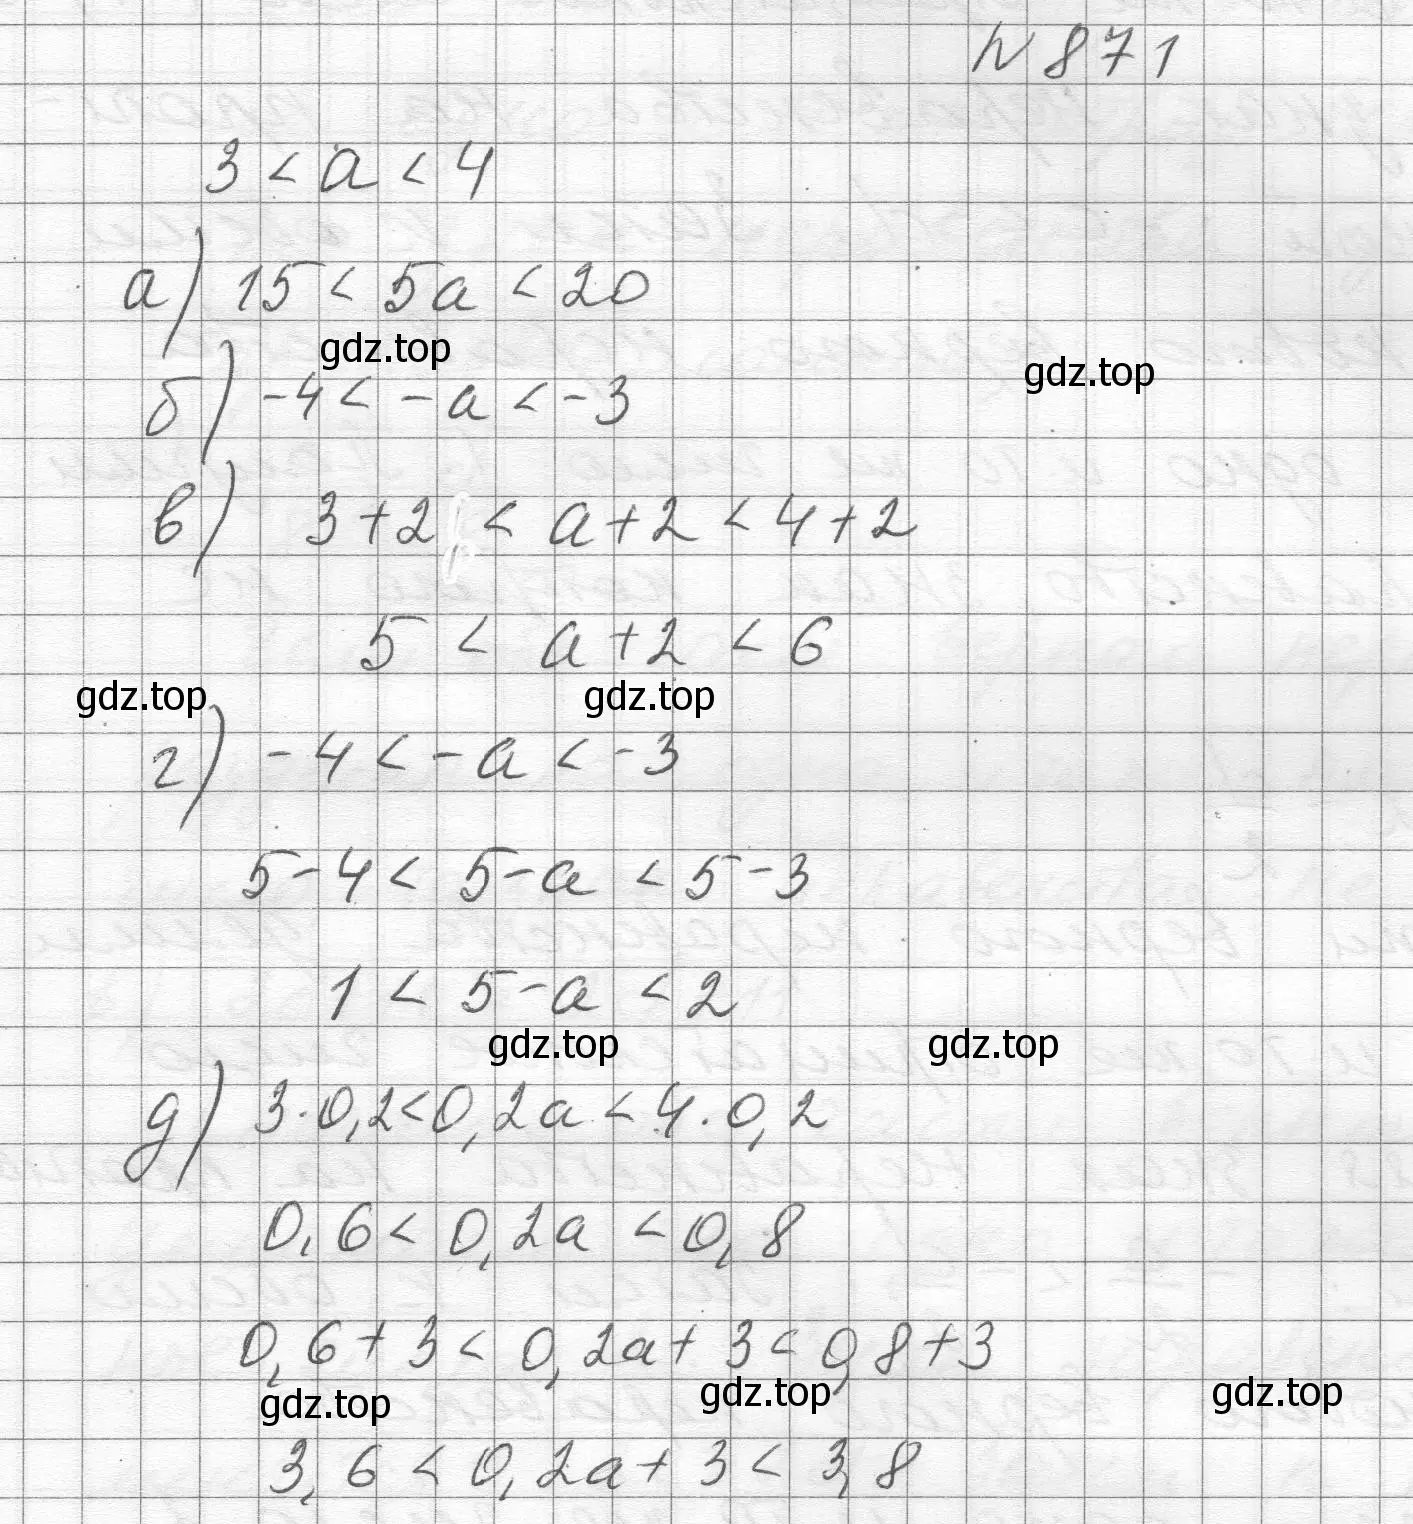 № 871
3 < a < 4
а) 15 < 5a < 20
gdz.top
gdz.top
б) -4 < -a < -3
в) 3+2 < a+2 < 4+2
5 < a+2 < 6
gdz.top
gdz.top
г) -4 < -a < -3
5-4 < 5-a < 5-3
1 < 5-a < 2
gdz.top
gdz.top
д) 3·0,2<0,2a<4·0,2
0,6 < 0,2a < 0,8
0,6+3 < 0,2a+3 < 0,8+3
gdz.top
gdz.top
gdz.top
3,6 < 0,2a+3 < 3,8